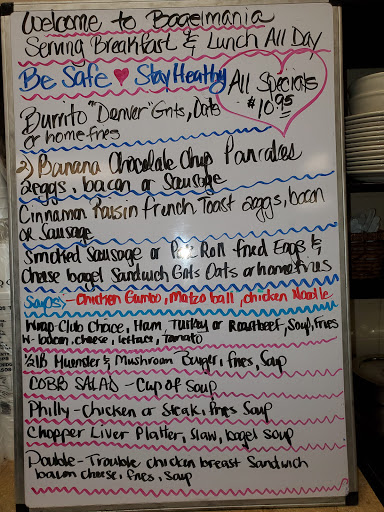 Welcome to Bagelmania
Serving Breakfast & Lunch All Day
Be Safe ♥ Stay Healthy
All Specials
$10.95
Burrito "Denver" Grits, Oats
or home-fries
2) Banana Chocolate Chip Pancakes
2eggs, bacon or Sausage
Cinnamon Raisin French Toast 2eggs, bacon
or Sausage
Smoked Sausage or Pork Roll fried Eggs &
Cheese bagel Sandwich Grits Oats or home fries
Soups:- Chicken Gumbo, Matzo ball, chicken Noodle
Wrap Club Choice, Ham, Turkey or Roastbeef, Soup, fries
W- bacon, cheese, lettuce, Tomato
Muenster & Mushroom Burger, fries, Soup
COBB SALAD - Cup of Soup
Philly - chicken or Steak, fries Soup
Chopper Liver Platter, Slaw, bagel Soup
Double - Trouble chicken breast Sandwich
bacon cheese, fries, Soup